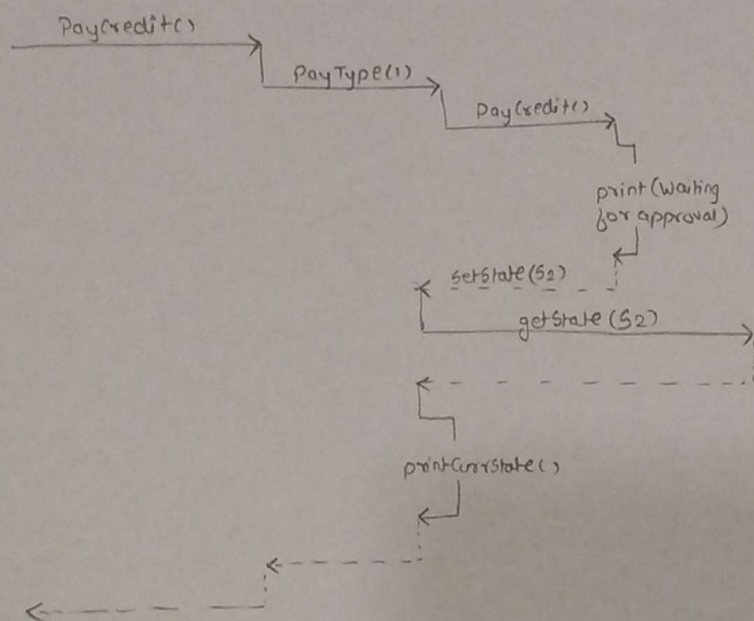 PayCredit()
PayType(1)
PayCredit()
print(Waiting
for approval)
setState(S2)
getState(S2)
printCurrState()